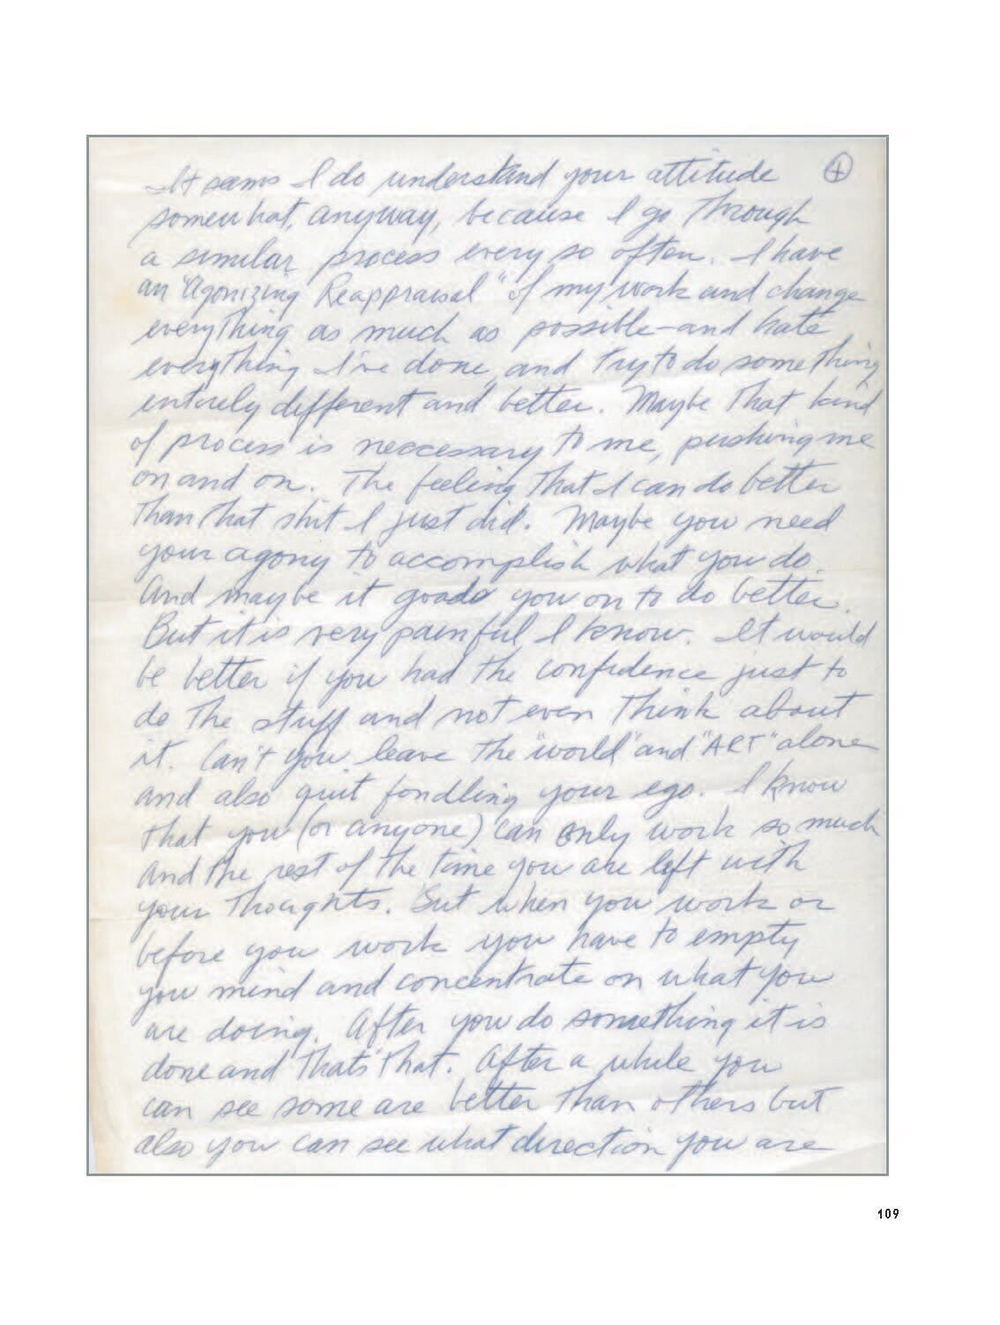 4
It seems I do understand your attitude
somewhat, anyway, because I go through
a similar process every so often. I have
an "Agonizing Reappraisal" of my work and change
everything as much as possible—and hate
everything I've done, and try to do something
entirely different and better. Maybe that kind
of process is neccessary to me, pushing me
on and on. The feeling that I can do better
than that shit I just did. Maybe you need
your agony to accomplish what you do.
And maybe it goads you on to do better.
But it is very painful I know. It would
be better if you had the confidence just to
do the stuff and not even think about
it. Can't you leave the "world" and "ART" alone
and also quit fondling your ego. I know
that you (or anyone) can only work so much
and the rest of the time you are left with
your thoughts. But when you work or
before you work you have to empty
you mind and concentrate on what you
are doing. After you do something it is
done and that's that. After a while you
can see some are better than others but
also you can see what direction you are
109